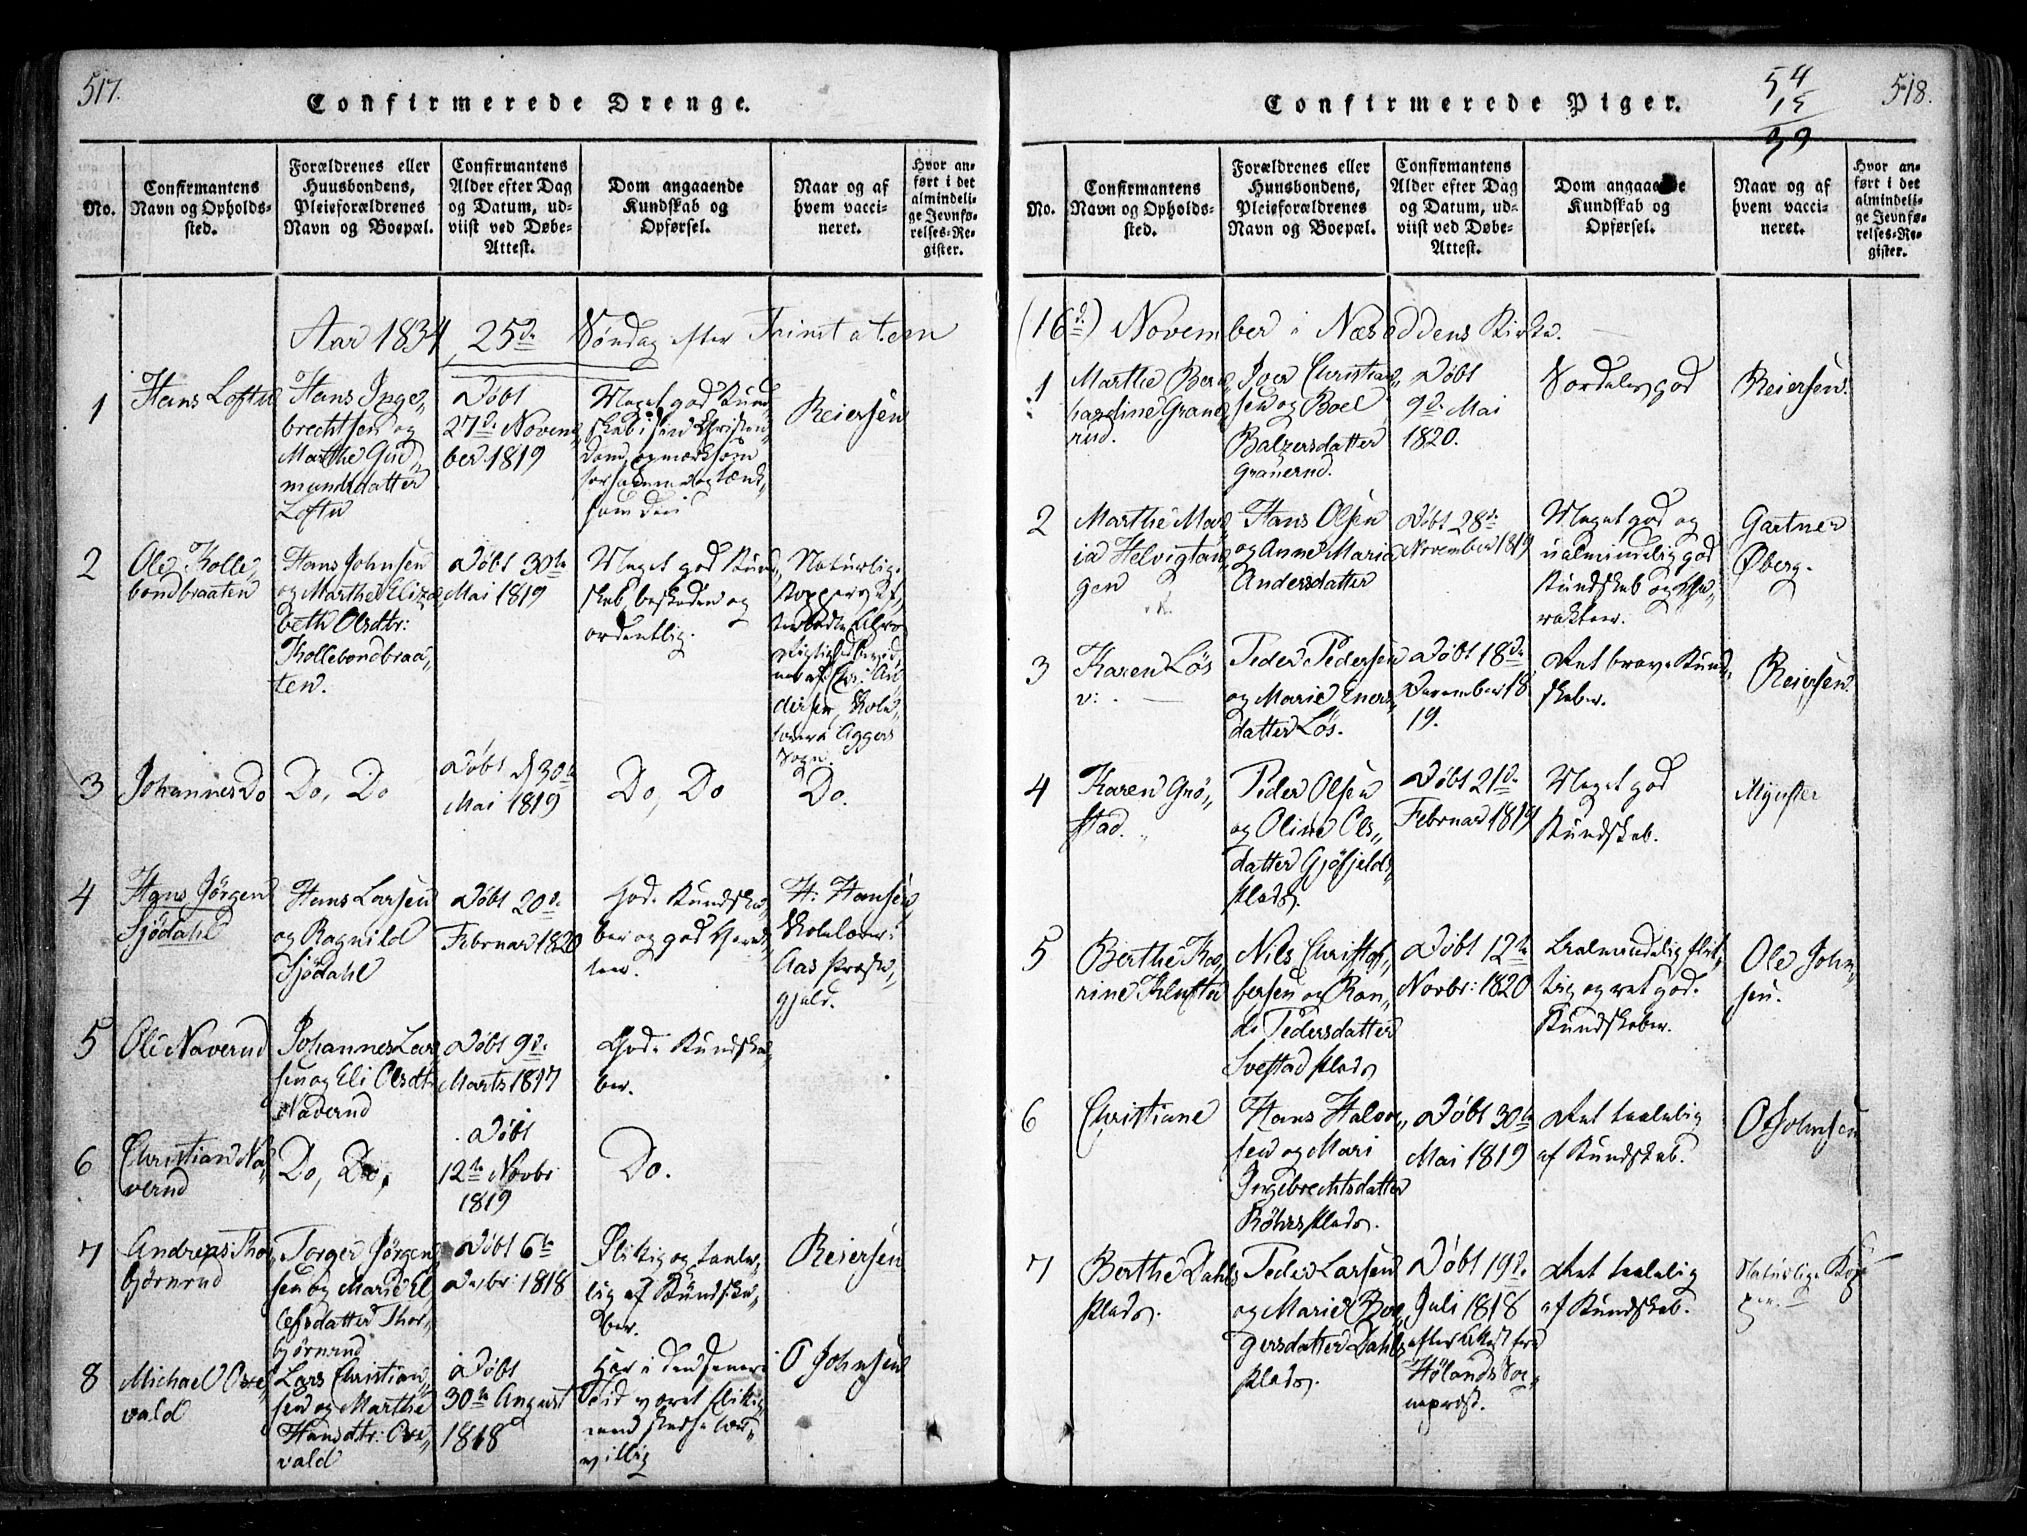 517.
Confirmerede Drenge.
No.
Confirmantens
Navn og Opholds-
sted.
Forældrenes eller
Huusbondens,
Pleieforældrenes
Navn og Boepæl.
Confirmantens
Alder efter Dag
og Datum, ud-
viist ved Døbe-
Attest.
Dom angaaende
Kundskab og
Opførsel.
Naar og af
hvem vacci-
neret.
Hvor an-
ført i det
almindeli-
ge Jevnfø-
relses-Re-
gister.
Aar 1834, 25de Søndag efter Trinitatem
1
Hans Loftu
Hans Inge-
brechtsen og
Marthe Gud-
mundsdatter
Loftu
Døbt
27de Novem-
ber 1819
Meget god Kund-
skab i sin Christen-
dom, opmærksom
Reiersen
2
Ole Kolle-
bondbraaten
Hans Johnsen
og Marthe Eliza-
beth Olsdtr:
Kollebondbraa-
ten.
Døbt 30te
Mai 1819
Meget god Kund-
skab, beskeden og
ordentlig.
Naturlige
Kopper
Aggers
Sogn.
3
Johannes Do
Do, Do
Døbt d 30te
Mai 1819
Do, Do
Do.
4
Hans Jörgen
Sjödahl
Hans Larsen
og Ragnild
Sjödahl
Døbt 20de
Februar 1820
Gode Kundska-
ber og god Karak-
teer.
H: Hansen
Skolelærer i
Aas Præste-
gjeld.
5
Ole Naverud
Johannes Lar-
sen og Eli Olsdtr
Naverud
Døbt 9de
Marts 1817
Gode Kundska-
ber.
6
Christian Na-
verud
Do, Do,
Døbt
12te Novbr
1819
Do.
7
Andreas Thor-
bjørnrud
Torger Jörgen-
sen og Marie El-
lefsdatter Thor-
bjørnrud
Døbt 6te
Decbr: 1818
Flittig og taale-
lig af Kundska-
ber.
Reiersen
8
Michael Ore-
vald
Lars Christian-
sen og Marthe
Hansdtr: Ore-
vald
Døbt
30te August
1818
Har i den senere
Tid været flittig
med stedse lær-
villig
O Johnsen
518.
54
15
99
Confirmerede Piger.
No.
Confirmantens
Navn og Opholds-
sted.
Forældrenes eller
Huusbondens,
Pleieforældrenes
Navn og Boepæl.
Confirmantens
Alder efter Dag
og Datum, ud-
viist ved Døbe-
Attest.
Dom angaaende
Kundskab og
Opførsel.
Naar og af
hvem vacci-
neret.
Hvor an-
ført i det
almindeli-
ge Jevnfø-
relses-Re-
gister.
(16de) November i Næsoddens Kirke.
1
Marthe Bern-
hardine Graue-
rud.
Iver Christian-
sen og Boel
Balzersdatter
Grauerud.
Døbt
9de Mai
1820.
Særdeles god
Reiersen.
2
Marthe Mar-
ia Helvigtan-
gen
Hans Olsen
og Anne Marie
Andersdatter
Døbt 28de
November 1819
Meget god og
ualmindelig god
Kundskab og Cha-
rakteer.
Gartner
Øberg.
3
Karen Lös
v:
Peder Pedersen
og Marie Eners-
datter Lös.
Døbt 18de
December 18
19.
Ret brave Kund-
skaber.
Reiersen.
4
Karen Grö-
stad.
Peder Olsen
og Oline Ols-
datter Gjöfjelds-
plads.
Døbt 21de
Februar 1819
Meget god
Kundskab.
Mynster
5
Berthe Ka-
rine Klufta
Nils Christof-
fersen og Ran-
di Pedersdatter
Svestad plads
Døbt 12te
Novbr: 1820
Ualmindelig flit-
tig og ret gode
Kundskaber.
Ole John-
sen.
6
Christiane
Hans Halvor-
sen og Mari
Ingebrechtsdatter
Röhrsplads.
Døbt 30te
Mai 1819
Ret taalelig
af Kundskab.
O Johnsen
7
Berthe Dahls
plads.
Peder Larsen
og Marie Bør-
gersdatter Dahls
plads.
Døbt 19de
Juli 1818
efter Attest fra
Hölands Sog-
neprest.
Ret taalelig
af Kundskab.
Naturlige Kop-
per.